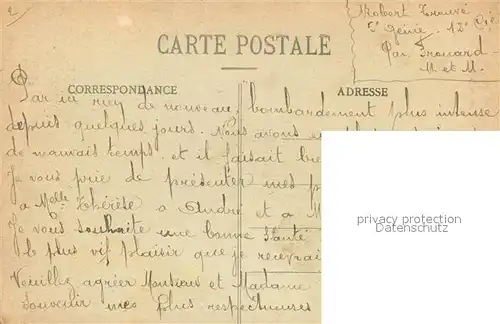 2
Robert Trouvé
5e Génie. 12e Cie
Par Frouard
M. et M.
CARTE POSTALE
CORRESPONDANCE
ADRESSE
Par ici rien de nouveau, bombardement plus intense
depuis quelques jours. Nous avons
de mauvais temps. et il faisait
Je vous prie de présenter mes
a Melle Thérèse a André et a M
Je vous souhaite une bonne santé
le plus vif plaisir que je
Veuillez agréer Monsieur et Madame
souvenir mes plus respectueuses
privacy protection
Datenschutz